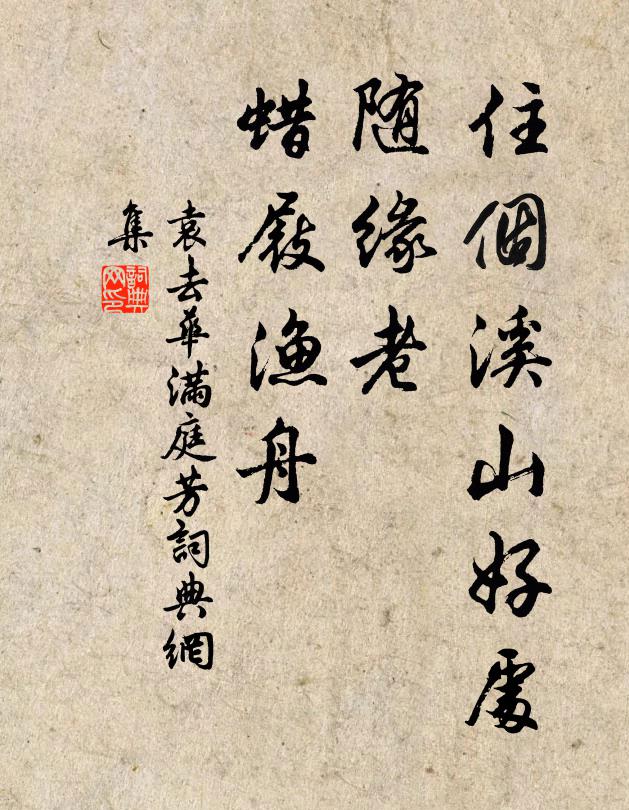 住個溪山好處
随緣老
蜡屐漁舟
袁去華滿庭芳詞典網
集
詞典网印